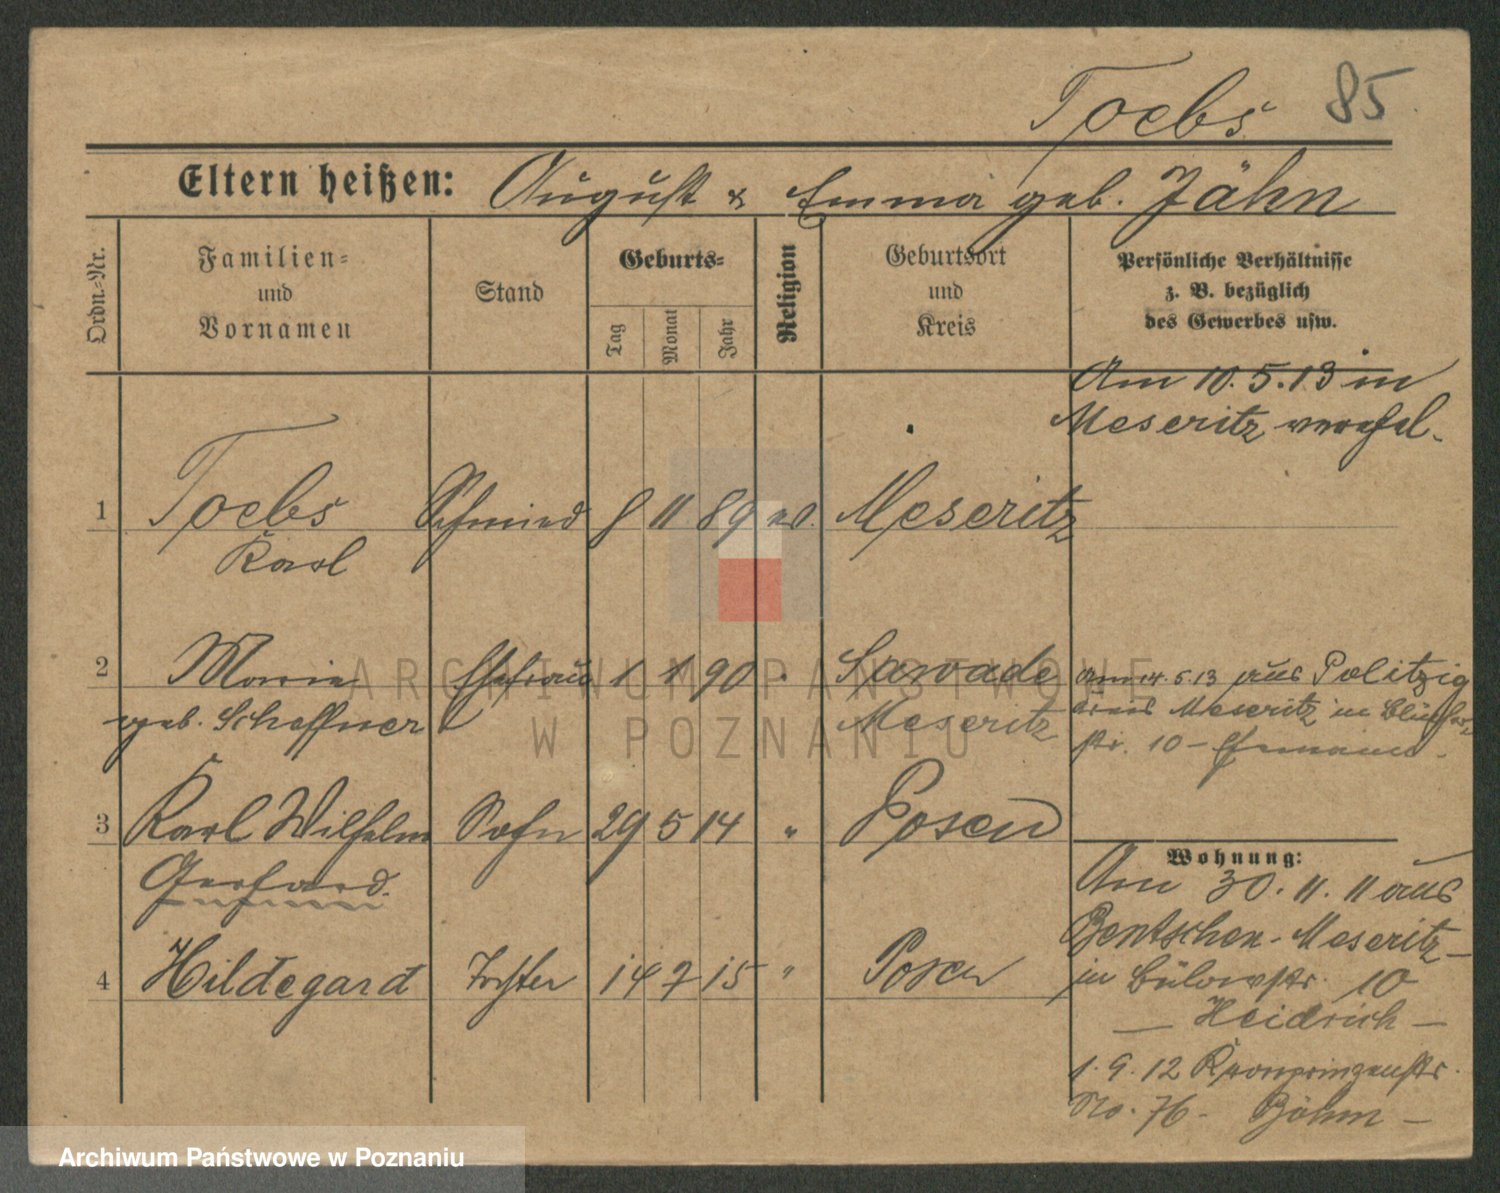 Toebs 85
Eltern heißen: August & Emma geb. Jähn
Ordn.-Nr.
Familien-
und
Vornamen
Stand
Geburts-
Tag
Monat
Jahr
Religion
Geburtsort
und
Kreis
Persönliche Verhältnisse
z. B. bezüglich
des Gewerbes usw.
Am 10.5.13 in
Meseritz verehel.
1 Toebs Schmied 8 11 89 ev. Meseritz
Karl
2 Marie Ehefrau 1 1 90 " Sawade
geb. Scheffner Meseritz
am 14.5.13 aus Politzig
Kreis Meseritz in Blücher
str. 10 - Ehemann -
3 Karl Wilhelm Sohn 29 5 14 " Posen
Gerhard.
4 Hildegard Tochter 14 7 15 " Posen
Wohnung:
Am 30.11.11 aus
Bentschen-Meseritz-
in Bülowstr. 10
— Heidrich —
1.9.12 Kronprinzenstr.
No. 76 - Böhm —
ARCHIWUM PAŃSTWOWE
W POZNANIU
Archiwum Państwowe w Poznaniu